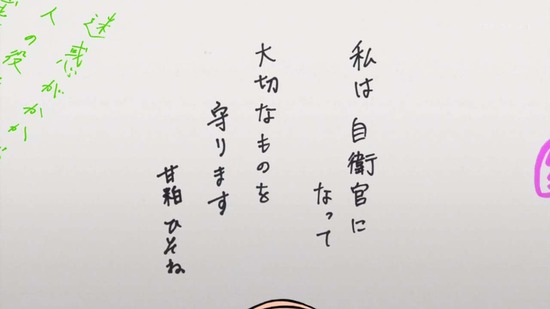 私は自衛官に
なって
大切なものを
守ります
甘粕ひそね
迷惑がかか
人の役